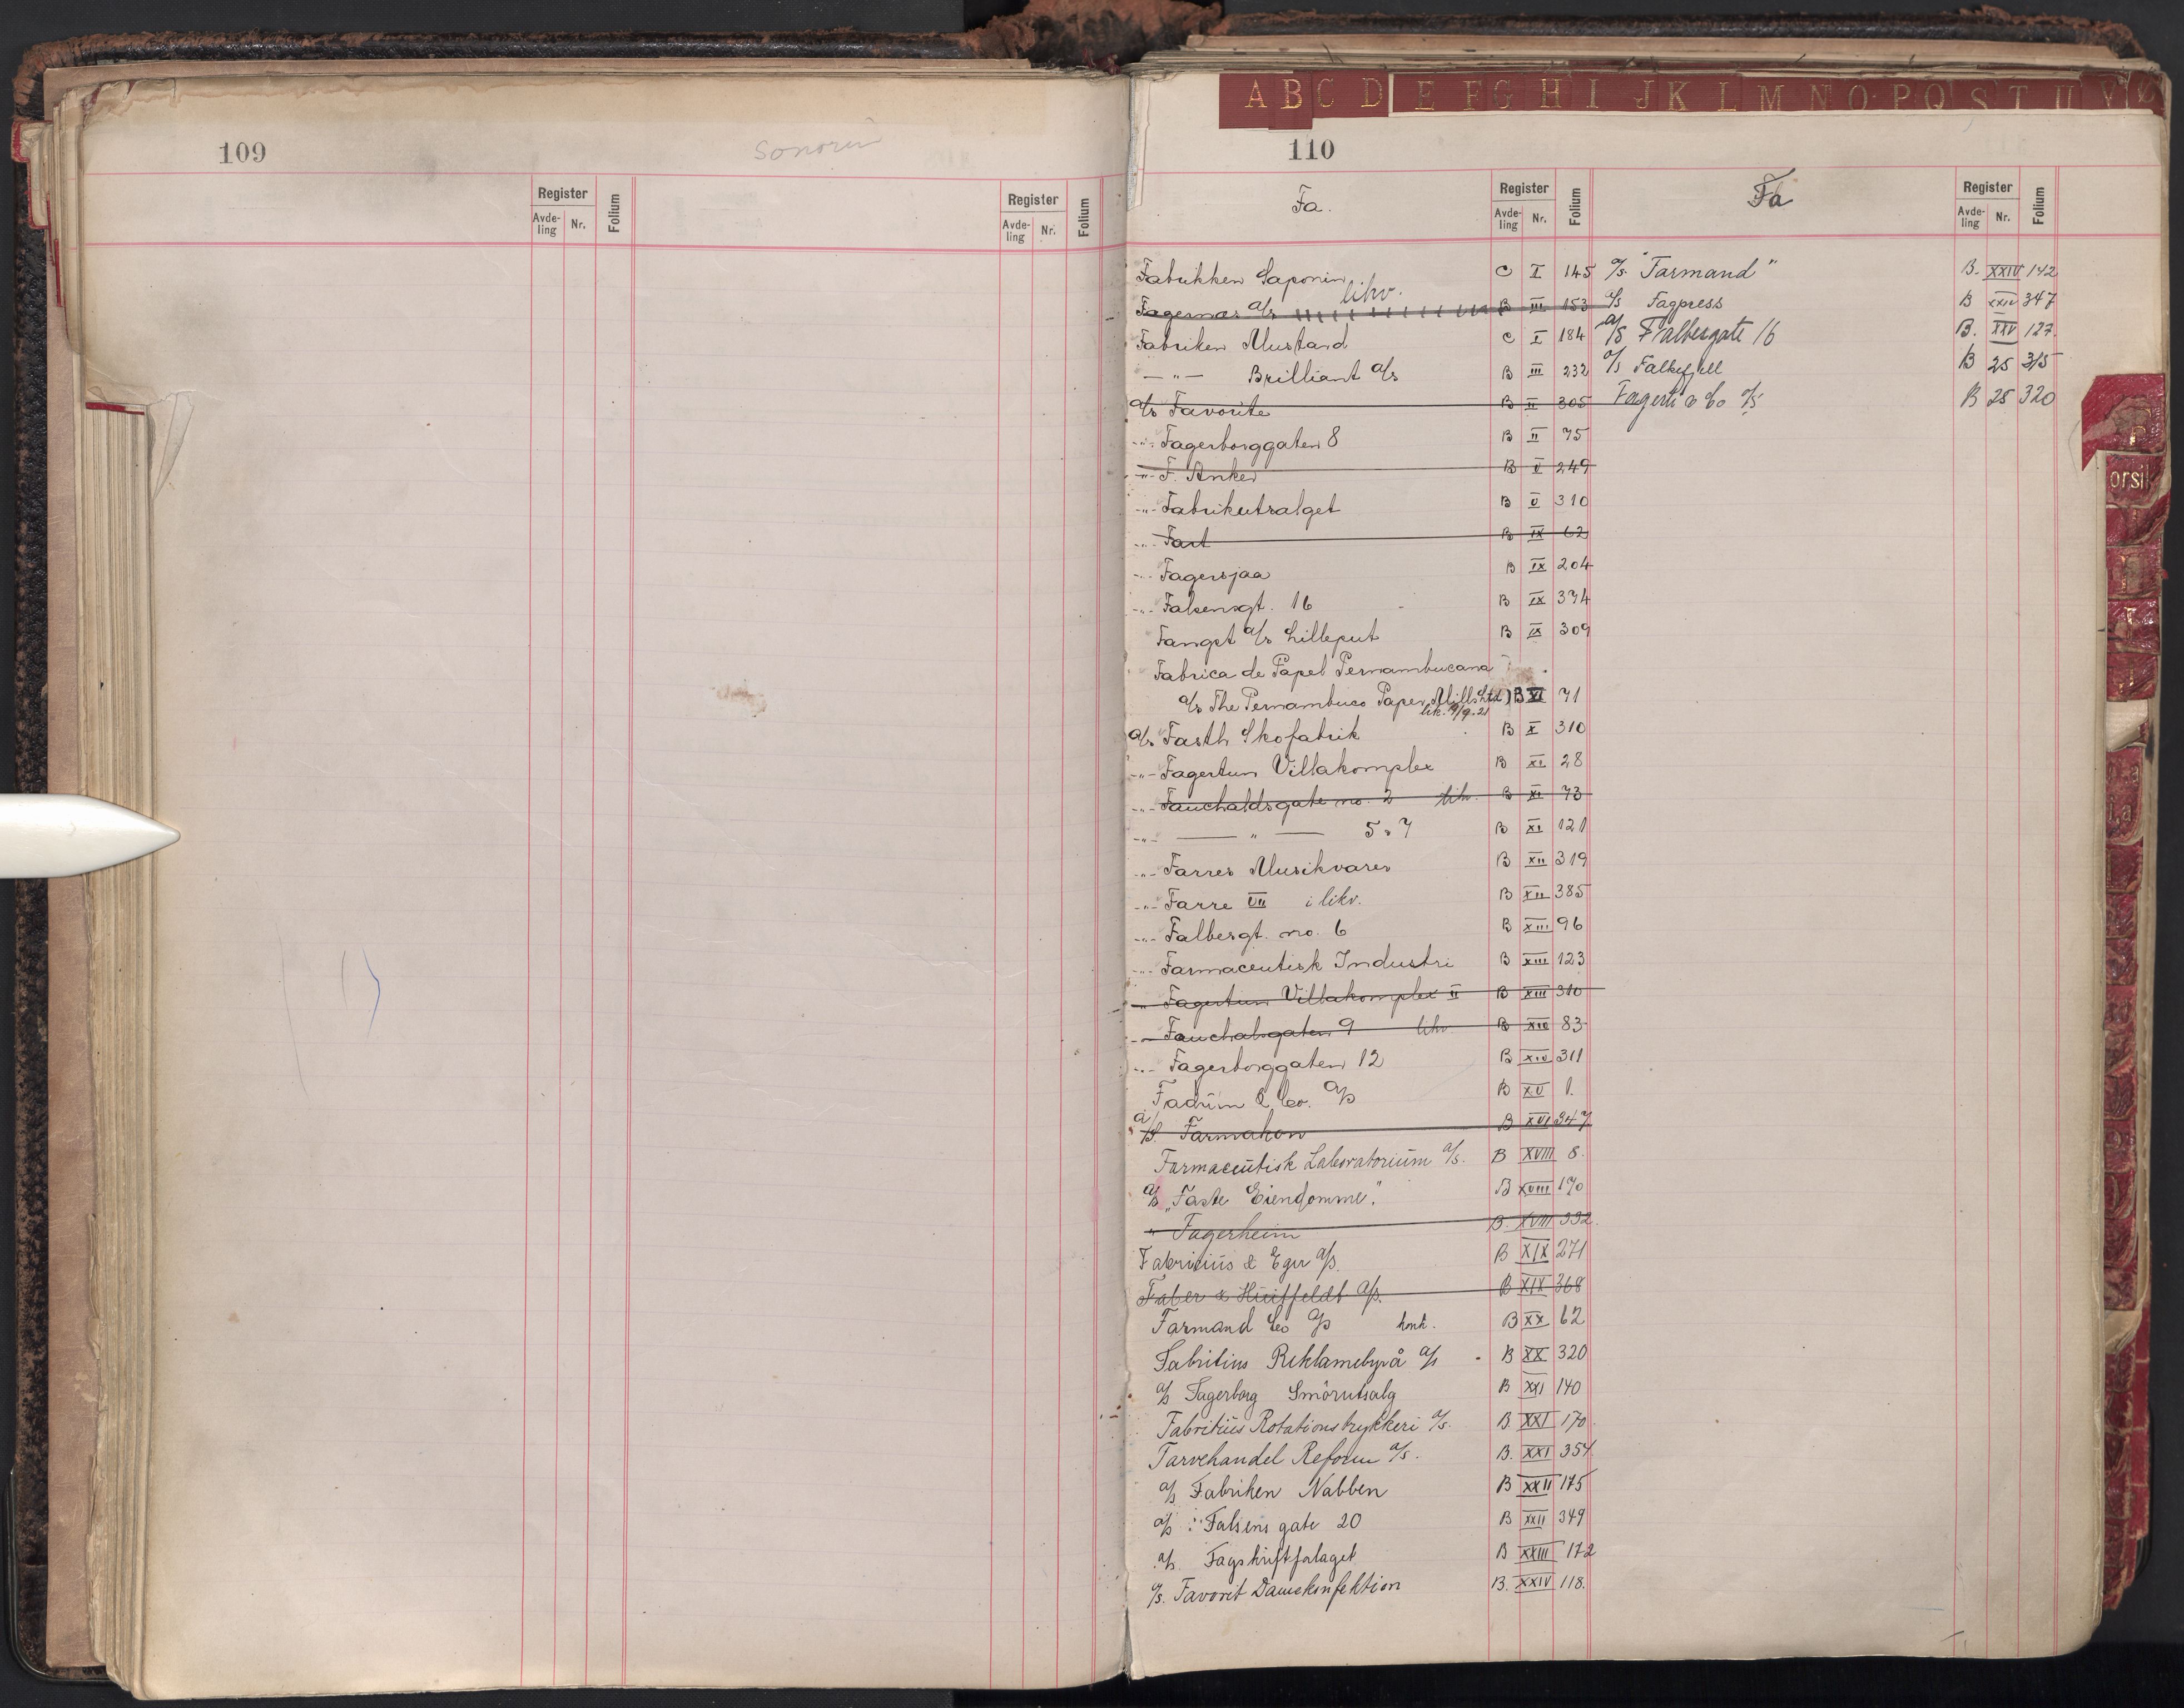 109
Register
Avde-
ling
Nr.
Folium
Register
Avde-
ling
Nr.
Folium
A B C D E F G H I J K L M N O P Q S T U V Ø
110
Fa.
Register
Avde-
ling
Nr.
Folium
Fa
Register
Avde-
ling
Nr.
Folium
Fabrikken Saponin C I 145
Fagernæs A/s likv. B III 153
Fabriken Mustard C I 184
— " — Brilliant A/s B III 232
A/s Favorite B II 305
-"- Fagerborggaten 8 B II 75
-"- F. Anker B V 249
-"- Fabrikutsalget B V 310
-"- Fart B IX 62
-"- Fagersjaa B IX 204
-"- Falsensgt. 16 B IX 334
Fangst A/s Lilleput B IX 309
Fabrica de Papel Pernambucana
A/s The Pernambuco Paper Mills Ltd) B XI 71
A/s Fasth Skofabrik lik. 9/9-21 B X 310
-"- Fagertun Villakomplex B XI 28
-"- Fauchaldsgate no. 2 likv. B XI 73
-"- — " — 5 & 7 B XI 121
-"- Farres Musikvarer B XII 319
-"- Farre VII i likv. B XII 385
-"- Falbesgt. no. 6 B XIII 96
-"- Farmaceutisk Industri B XIII 123
-"- Fagertun Villakomplex II B XIII 310
-"- Fauchalsgaten 9 likv. B XIV 83
-"- Fagerborggaten 12 B XIV 311
Fadum & Co. A/s B XV 1.
A/S. Farmakon B XVI 347
Farmaceutisk Laboratorium A/s. B XVIII 8.
A/s "Faste Eiendomme". B XVIII 170
" Fagerheim B. XVIII 332.
Fabricius & Eger A/s. B XIX 271
Faber & Huitfeldt A/s. B XIX 368
Farmand Co A/s konk. B XX 62
Fabritius Reklamebyrå A/s B XX 320
A/s Fagerborg Smørutsalg B XXI 140
Fabritius Rotationstrykkeri A/s. B. XXI 170
Farvehandel Reform A/s. B. XXI 354.
A/s Fabriken Nabben B XXII 175
A/s Falsens gate 20 B XXII 349
A/s. Fagskriftforlaget B XXIII 172
A/s. Favorit Damekonfektion B. XXIV 118.
A/s. "Farmand" B. XXIV 142
A/s Fagpress B XXIV 347
A/S Falbesgate 16 B. XXV 127.
A/s Falkefjell B 25 315
Fagerli & Co A/s B 25 320